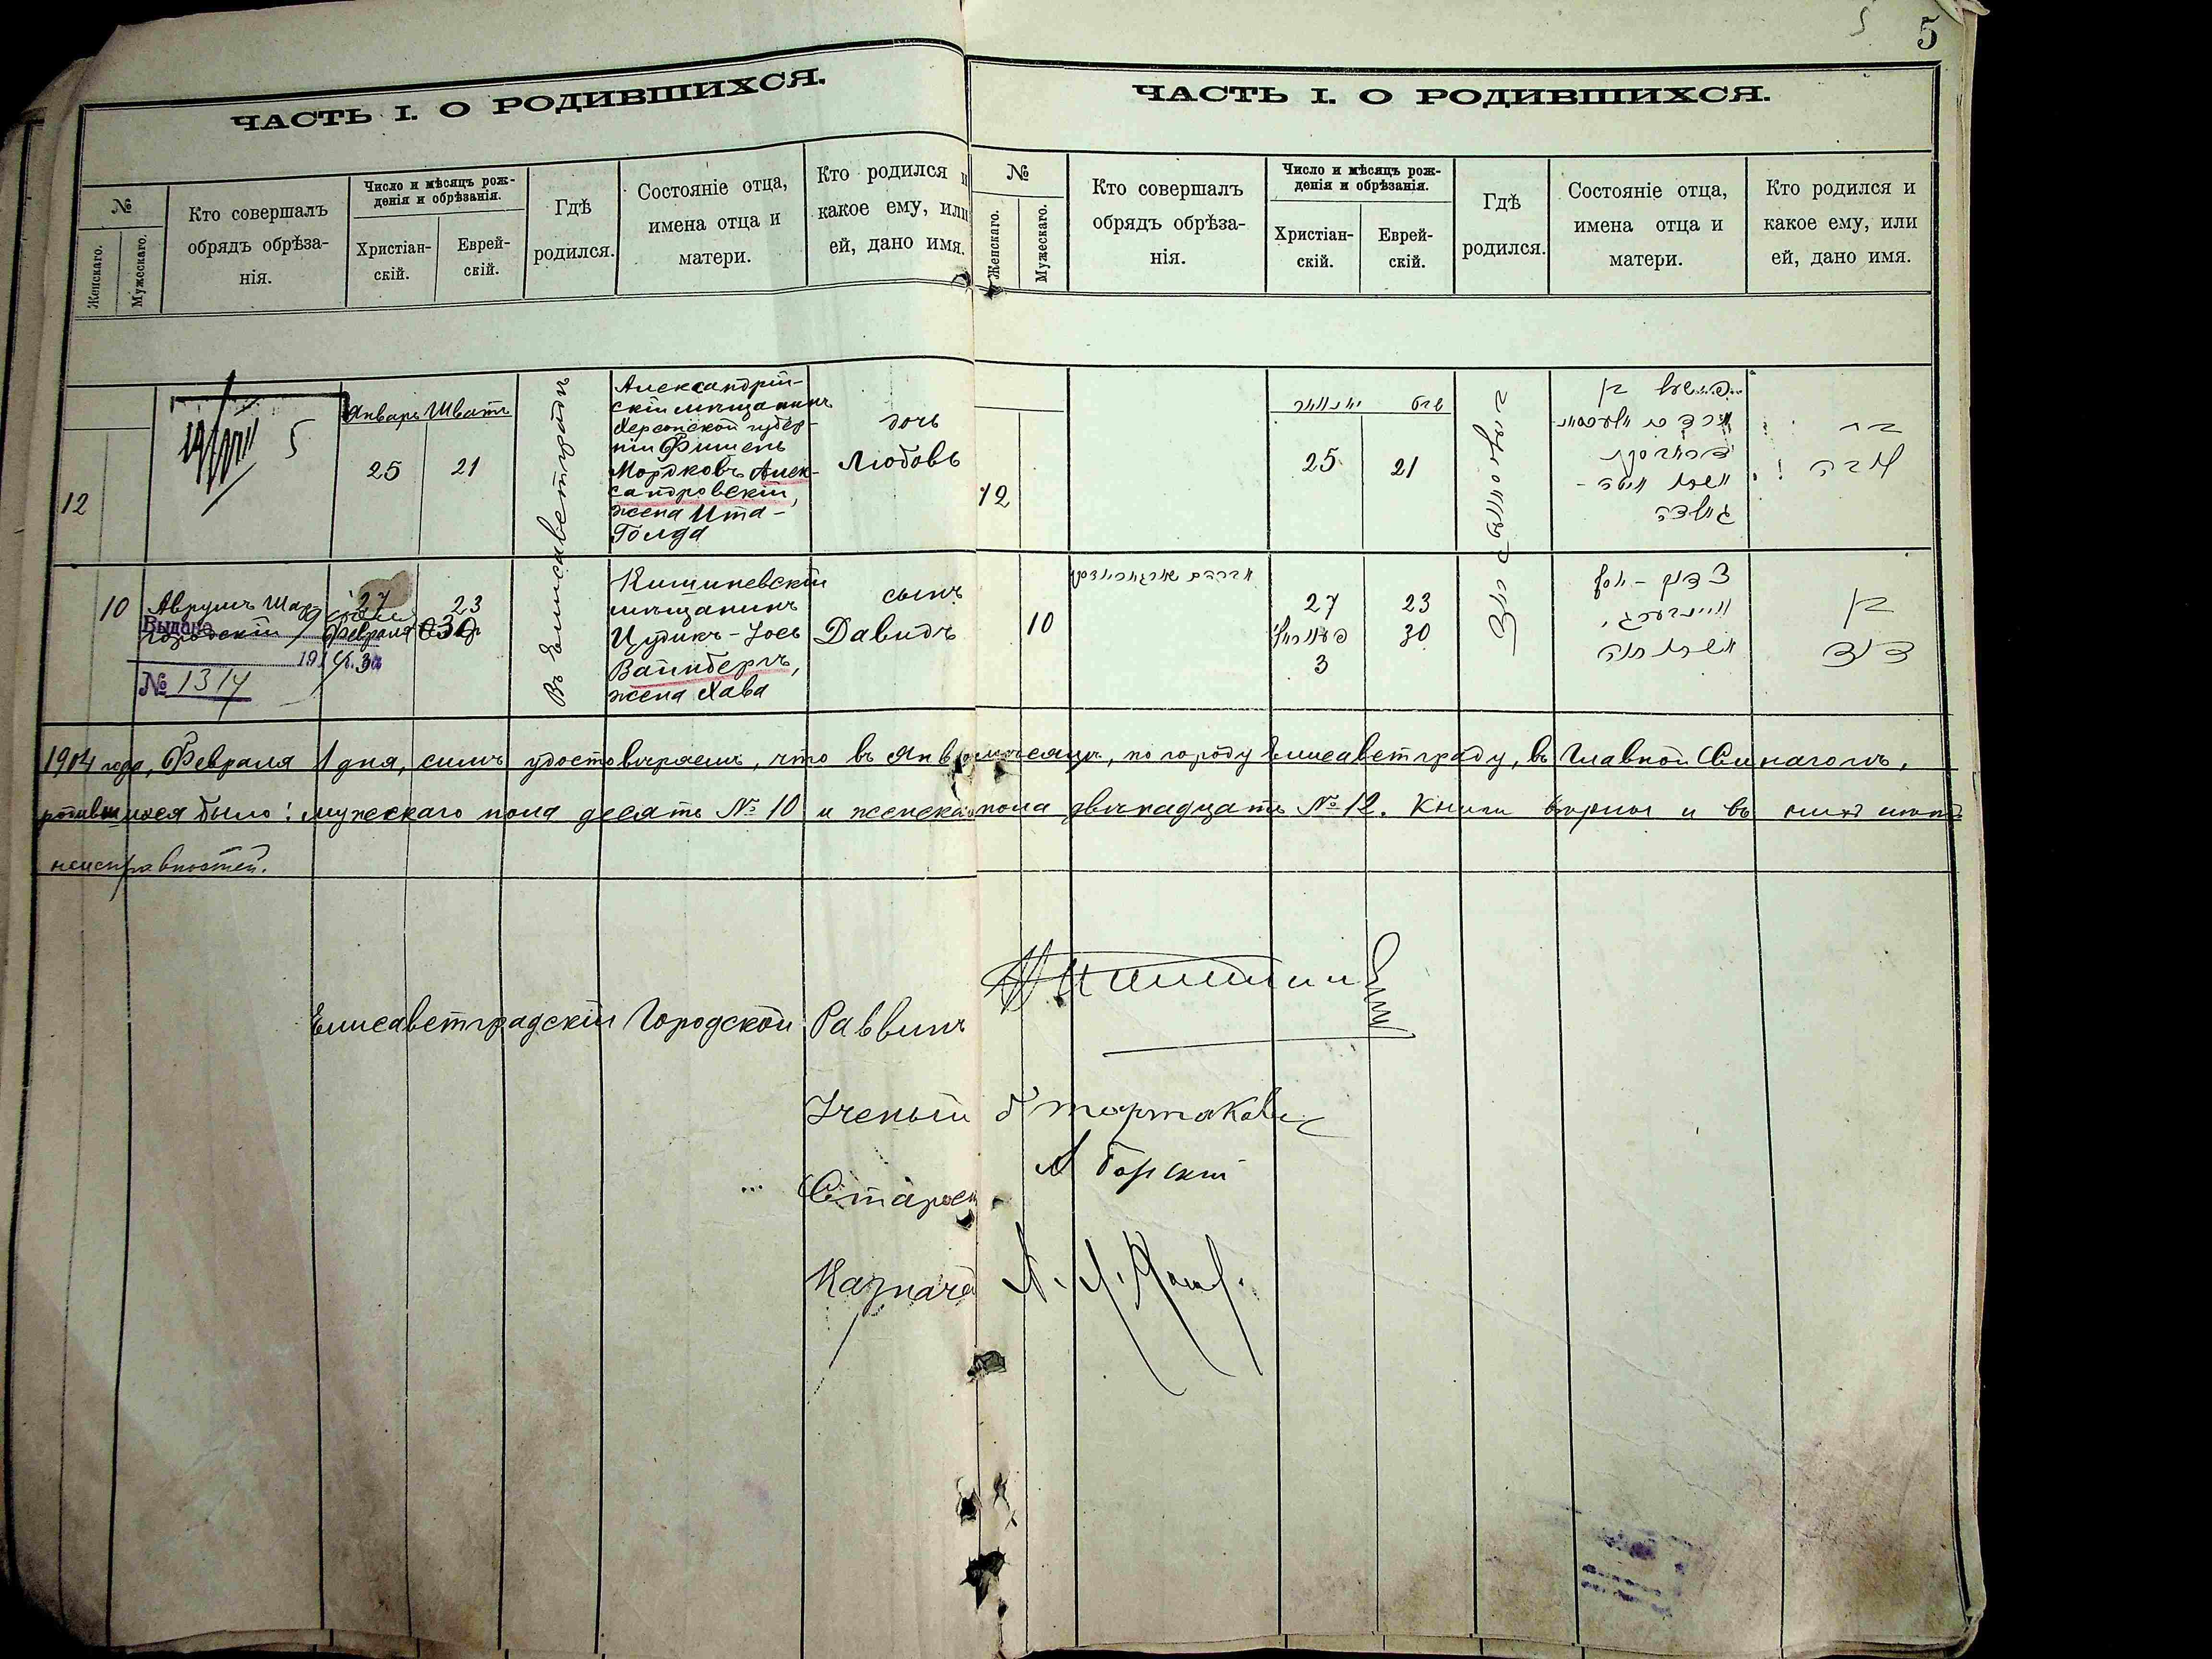 5
5
ЧАСТЬ I. О РОДИВШИХСЯ.
№
Женскаго.
Мужескаго.
Кто совершалъ
обрядъ обрѣза-
нія.
Число и мѣсяцъ рож-
денія и обрѣзанія.
Христіан-
скій.
Еврей-
скій.
Гдѣ
родился.
Состояніе отца,
имена отца и
матери.
Кто родился и
какое ему, или
ей, дано имя.
12
5
Январь Шватъ
25
21
Въ Елисаветградѣ
Александрій-
скій мѣщанинъ
Херсонской губер-
ніи Фишель
Мордковъ Алек-
сандровскій,
жена Ита-
Голда
дочь
Любовь
10
Аврумъ Шар-
городскій
Выдана
191
№ 1314
27
Февраля
3
23
30
Кишиневскій
мѣщанинъ
Цудикъ-Іось
Вайнбергъ,
жена Хава
сынъ
Давидъ
ЧАСТЬ I. О РОДИВШИХСЯ.
№
Женскаго.
Мужескаго.
Кто совершалъ
обрядъ обрѣза-
нія.
Число и мѣсяцъ рож-
денія и обрѣзанія.
Христіан-
скій.
Еврей-
скій.
Гдѣ
родился.
Состояніе отца,
имена отца и
матери.
Кто родился и
какое ему, или
ей, дано имя.
12
יאנואר
שבט
25
21
פישעל בן
גאלדה
בת
10
אברהם שאראגאראדסקי
27
23
פעווראל
30
3
צדוק - יוסף
וויינבערג,
אשתו חוה
בן
דוד
1904 года, Февраля 1 дня, симъ удостовѣряемъ, что въ Январѣ мѣсяцѣ, по городу Елисаветграду, въ Главной Синагогѣ,
родившихся было: мужескаго пола десять № 10 и женскаго пола двѣнадцать № 12. Книги вѣрны и въ нихъ нѣтъ
неисправностей.
Елисаветградскій Городской Раввинъ
Ученый
Староста
А Борский
Казначей